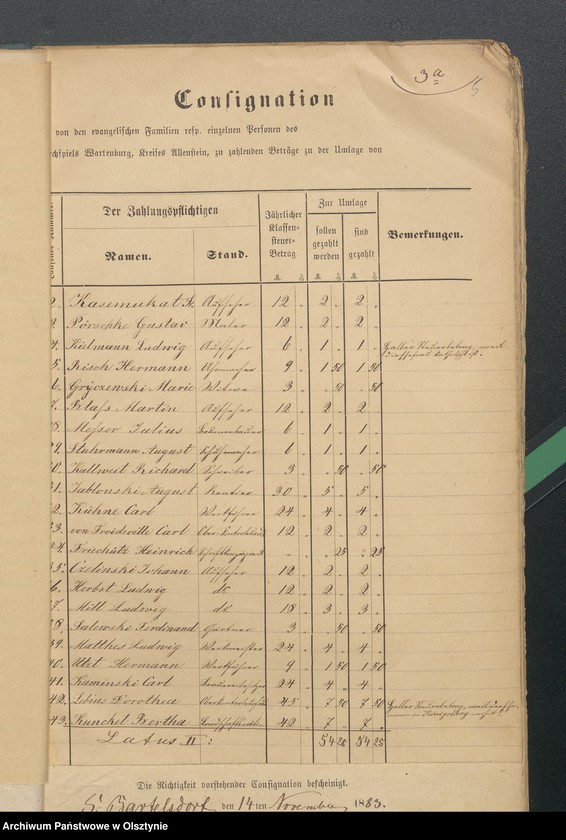 3a
5
Consignation
von den evangelischen Familien resp. einzelnen Personen des
chspiels Wartenburg, Kreises Allenstein, zu zahlenden Beträge zu der Umlage von
Der Zahlungspflichtigen
Namen. Stand.
Jährlicher Klassen-steuer-Betrag
Zur Umlage
sollen gezahlt werden
sind gezahlt
Bemerkungen.
Kasemukat Fr. Aufseher 12 . 2 . 2 .
Pörschke Gustav Maler 12 . 2 . 2 .
4. Kielmann Ludwig Aufseher 6 . 1 . 1 .
5. Risch Hermann 9 . 1 50 1 50
6. Gryczewski Marie Witwe 3 . . 50 . 50
7. Klafs Martin Aufseher 12 . 2 . 2 .
8. Messer Julius 6 . 1 . 1 .
29. Stuhrmann August 6 . 1 . 1 .
30. Kallwest Richard Schreiber 3 . . 50 . 50
31. Jablonski August Rentier 30 . 5 . 5 .
32. Kühne Carl Werkführer 24 . 4 . 4 .
33. von Froideville Carl 12 . 2 . 2 .
34. Heinrich . . . 25 . 25
35. Czelinski Johann Aufseher 12 . 2 . 2 .
36. Herbst Ludwig do 12 . 2 . 2 .
37. Mill Ludwig do 18 . 3 . 3 .
38. Salewski Ferdinand Gärtner 3 . . 50 . 50
39. Matthes Ludwig Werkmeister 24 . 4 . 4 .
40. Hermann Werkführer 9 . 1 50 1 50
41. Kaminski Carl 24 . 4 . 4 .
42. Lebius Dorothea 45 . 7 50 7 50
43. Kunckel Bertha 42 . 7 . 7 .
Latus II: 54 25 54 25
Die Richtigkeit vorstehender Consignation bescheinigt.
Bartelsdorf den 14ten November 1883.
Archiwum Państwowe w Olsztynie